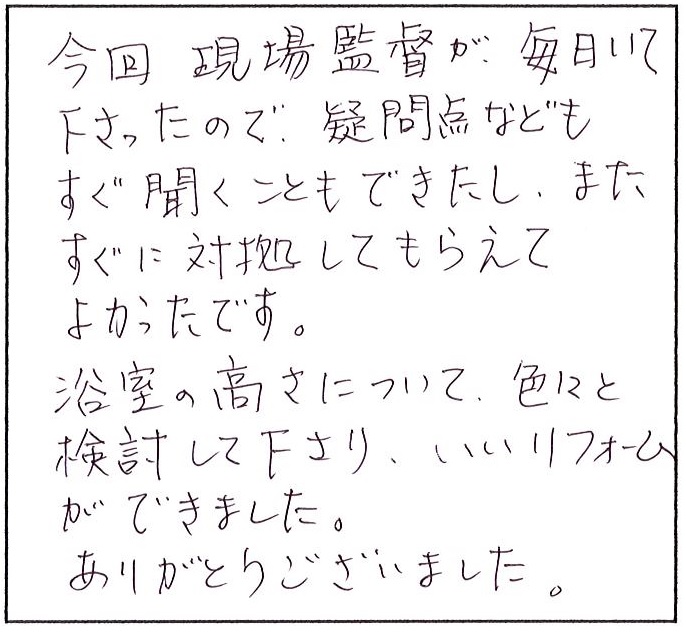 今回 現場監督が、毎日いて
下さったので、疑問点なども
すぐ聞くこともできたし、また
すぐに対拠してもらえて
よかったです。
浴室の高さについて、色々と
検討して下さり、いいリフォーム
ができました。
ありがとうございました。